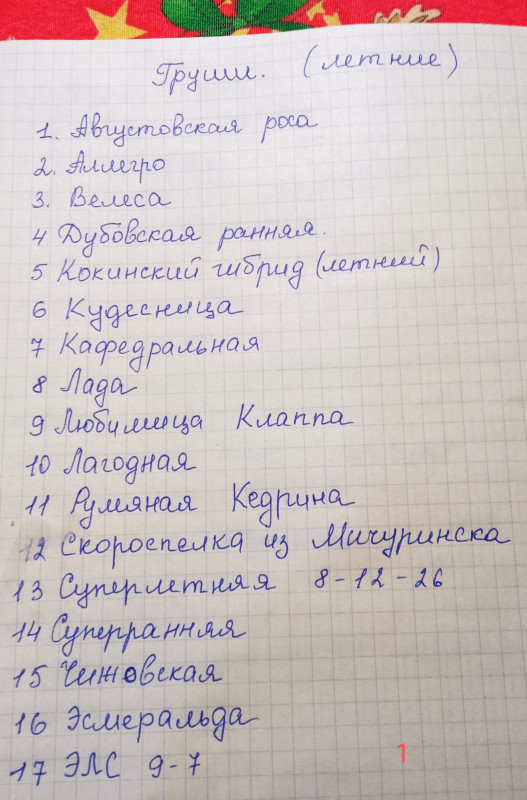 Груши. (летние)
1. Августовская роса
2. Аллегро
3. Велеса
4 Дубовская ранняя.
5 Кокинский гибрид (летний)
6 Кудесница
7 Кафедральная
8 Лада
9 Любимица Клаппа
10 Лагодная
11 Румяная Кедрина
12 Скороспелка из Мичуринска
13 Суперлетняя 8-12-26
14 Суперранняя
15 Чижовская
16 Эсмеральда
17 ЭЛС 9-7
1